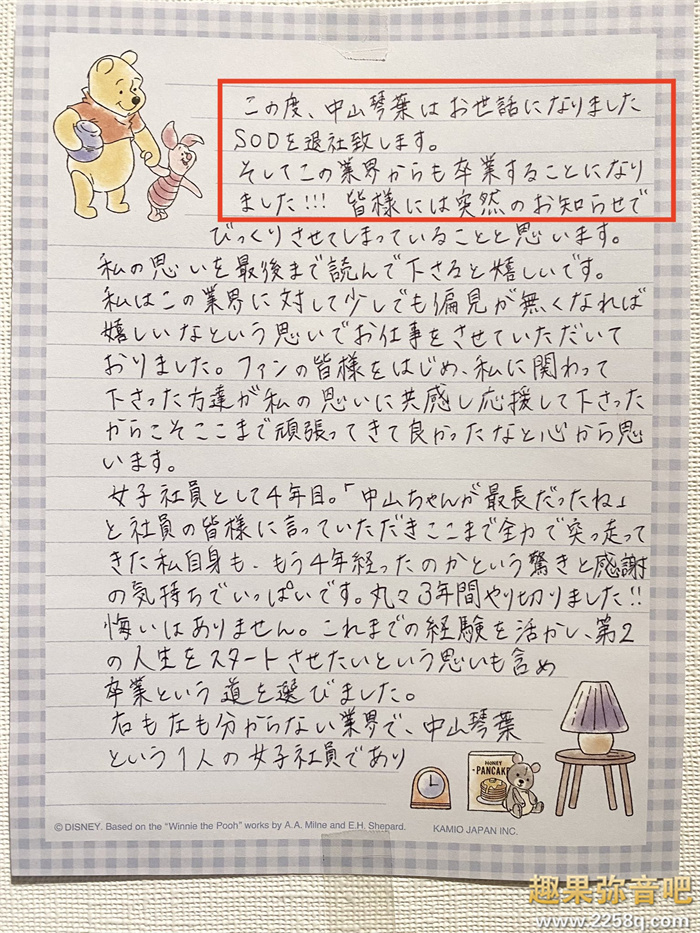 この度、中山琴葉はお世話になりました
SODを退社致します。
そしてこの業界からも卒業することになり
ました!!! 皆様には突然のお知らせで
びっくりさせてしまっていることと思います。
私の思いを最後まで読んで下さると嬉しいです。
私はこの業界に対して少しでも偏見が無くなれば
嬉しいなという思いでお仕事をさせていただいて
おりました。ファンの皆様をはじめ、私に関わって
下さった方達が私の思いに共感し応援して下さった
からこそここまで頑張ってきて良かったなと心から思
います。
女子社員として4年目。「中山ちゃんが最長だったね」
と社員の皆様に言っていただきここまで全力で突っ走って
きた私自身も、もう4年経ったのかという驚きと感謝
の気持ちでいっぱいです。丸々3年間やり切りました!!
悔いはありません。これまでの経験を活かし、第2
の人生をスタートさせたいという思いも含め
卒業という道を選びました。
右も左も分からない業界で、中山琴葉
という1人の女子社員であり
HONEY
PANCAKE
©DISNEY. Based on the "Winnie the Pooh" works by A.A. Milne and E.H. Shepard.
KAMIO JAPAN INC.
趣果弥音吧
www.2258q.com